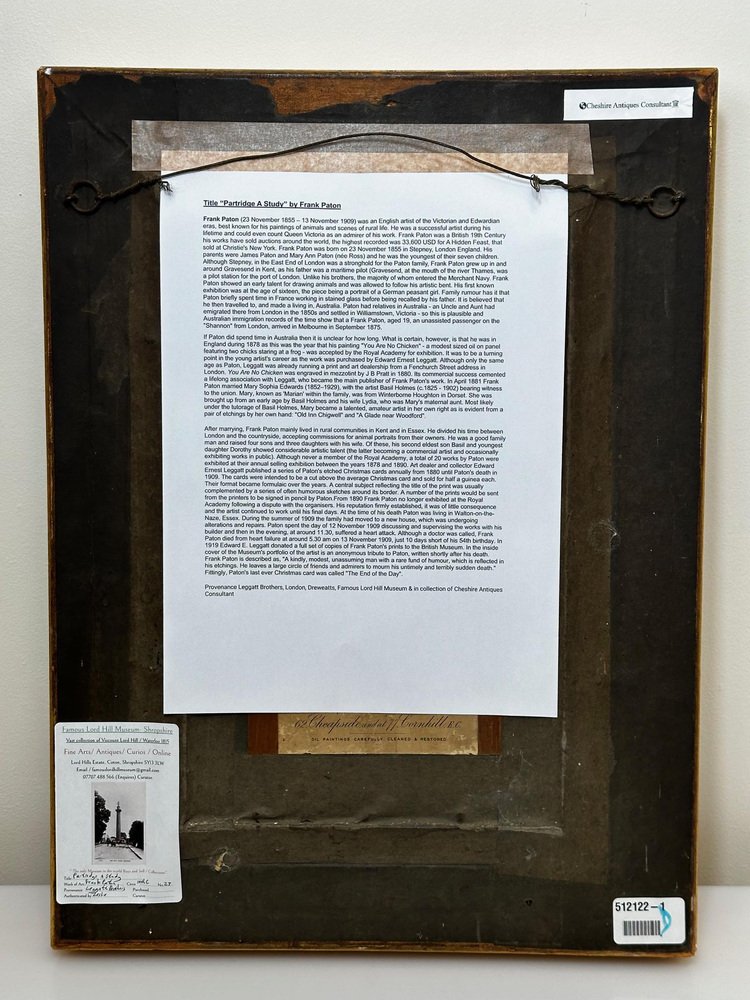 Cheshire Antiques Consultant
Title "Partridge A Study" by Frank Paton
Frank Paton (23 November 1855 – 13 November 1909) was an English artist of the Victorian and Edwardian
eras, best known for his paintings of animals and scenes of rural life. He was a successful artist during his
lifetime and could even count Queen Victoria as an admirer of his work. Frank Paton was a British 19th Century
his works have sold auctions around the world, the highest recorded was 33,600 USD for A Hidden Feast, that
sold at Christie's New York. Frank Paton was born on 23 November 1855 in Stepney, London England. His
parents were James Paton and Mary Ann Paton (née Ross) and he was the youngest of their seven children.
Although Stepney, in the East End of London was a stronghold for the Paton family, Frank Paton grew up in and
around Gravesend in Kent, as his father was a maritime pilot (Gravesend, at the mouth of the river Thames, was
a pilot station for the port of London. Unlike his brothers, the majority of whom entered the Merchant Navy. Frank
Paton showed an early talent for drawing animals and was allowed to follow his artistic bent. His first known
exhibition was at the age of sixteen, the piece being a portrait of a German peasant girl. Family rumour has it that
Paton briefly spent time in France working in stained glass before being recalled by his father. It is believed that
he then travelled to, and made a living in, Australia. Paton had relatives in Australia - an Uncle and Aunt had
emigrated there from London in the 1850s and settled in Williamstown, Victoria - so this is plausible and
Australian immigration records of the time show that a Frank Paton, aged 19, an unassisted passenger on the
"Shannon" from London, arrived in Melbourne in September 1875.
If Paton did spend time in Australia then it is unclear for how long. What is certain, however, is that he was in
England during 1878 as this was the year that his painting "You Are No Chicken" - a modest sized oil on panel
featuring two chicks staring at a frog - was accepted by the Royal Academy for exhibition. It was to be a turning
point in the young artist's career as the work was purchased by Edward Ernest Leggatt. Although only the same
age as Paton, Leggatt was already running a print and art dealership from a Fenchurch Street address in
London. You Are No Chicken was engraved in mezzotint by J B Pratt in 1880. Its commercial success cemented
a lifelong association with Leggatt, who became the main publisher of Frank Paton's work. In April 1881 Frank
Paton married Mary Sophia Edwards (1852–1929), with the artist Basil Holmes (c.1825 - 1902) bearing witness
to the union. Mary, known as 'Marian' within the family, was from Winterborne Houghton in Dorset. She was
brought up from an early age by Basil Holmes and his wife Lydia, who was Mary's maternal aunt. Most likely
under the tutorage of Basil Holmes, Mary became a talented, amateur artist in her own right as is evident from a
pair of etchings by her own hand: "Old Inn Chigwell" and "A Glade near Woodford".
After marrying, Frank Paton mainly lived in rural communities in Kent and in Essex. He divided his time between
London and the countryside, accepting commissions for animal portraits from their owners. He was a good family
man and raised four sons and three daughters with his wife. Of these, his second eldest son Basil and youngest
daughter Dorothy showed considerable artistic talent (the latter becoming a commercial artist and occasionally
exhibiting works in public). Although never a member of the Royal Academy, a total of 20 works by Paton were
exhibited at their annual selling exhibition between the years 1878 and 1890. Art dealer and collector Edward
Ernest Leggatt published a series of Paton's etched Christmas cards annually from 1880 until Paton's death in
1909. The cards were intended to be a cut above the average Christmas card and sold for half a guinea each.
Their format became formulaic over the years. A central subject reflecting the title of the print was usually
complemented by a series of often humorous sketches around its border. A number of the prints would be sent
from the printers to be signed in pencil by Paton.From 1890 Frank Paton no longer exhibited at the Royal
Academy following a dispute with the organisers. His reputation firmly established, it was of little consequence
and the artist continued to work until his final days. At the time of his death Paton was living in Walton-on-the-
Naze, Essex. During the summer of 1909 the family had moved to a new house, which was undergoing
alterations and repairs. Paton spent the day of 12 November 1909 discussing and supervising the works with his
builder and then in the evening, at around 11.30, suffered a heart attack. Although a doctor was called, Frank
Paton died from heart failure at around 5.30 am on 13 November 1909, just 10 days short of his 54th birthday. In
1919 Edward E. Leggatt donated a full set of copies of Frank Paton's prints to the British Museum. In the inside
cover of the Museum's portfolio of the artist is an anonymous tribute to Paton, written shortly after his death.
Frank Paton is described as, "A kindly, modest, unassuming man with a rare fund of humour, which is reflected in
his etchings. He leaves a large circle of friends and admirers to mourn his untimely and terribly sudden death."
Fittingly, Paton's last ever Christmas card was called "The End of the Day".
Provenance Leggatt Brothers, London, Dreweatts, Famous Lord Hill Museum & in collection of Cheshire Antiques
Consultant
62 Cheapside and at 77 Cornhill E.C.
OIL PAINTINGS CAREFULLY CLEANED & RESTORED
Famous Lord Hill Museum- Shropshire
Vast collection of Viscount Lord Hill / Waterloo 1815
Fine Arts/ Antiques/ Curios / Online
Lord Hills Estate, Coton, Shropshire SY13 3LW
Email / famouslordhillmuseum@gmail.com
07707 488 566 (Enquires) Curator
Title Partridge A Study
Work of Art Frank Paton Circa No.
Provenance Leggatt Brothers Purchased
Authenticated by Curator
512122-1